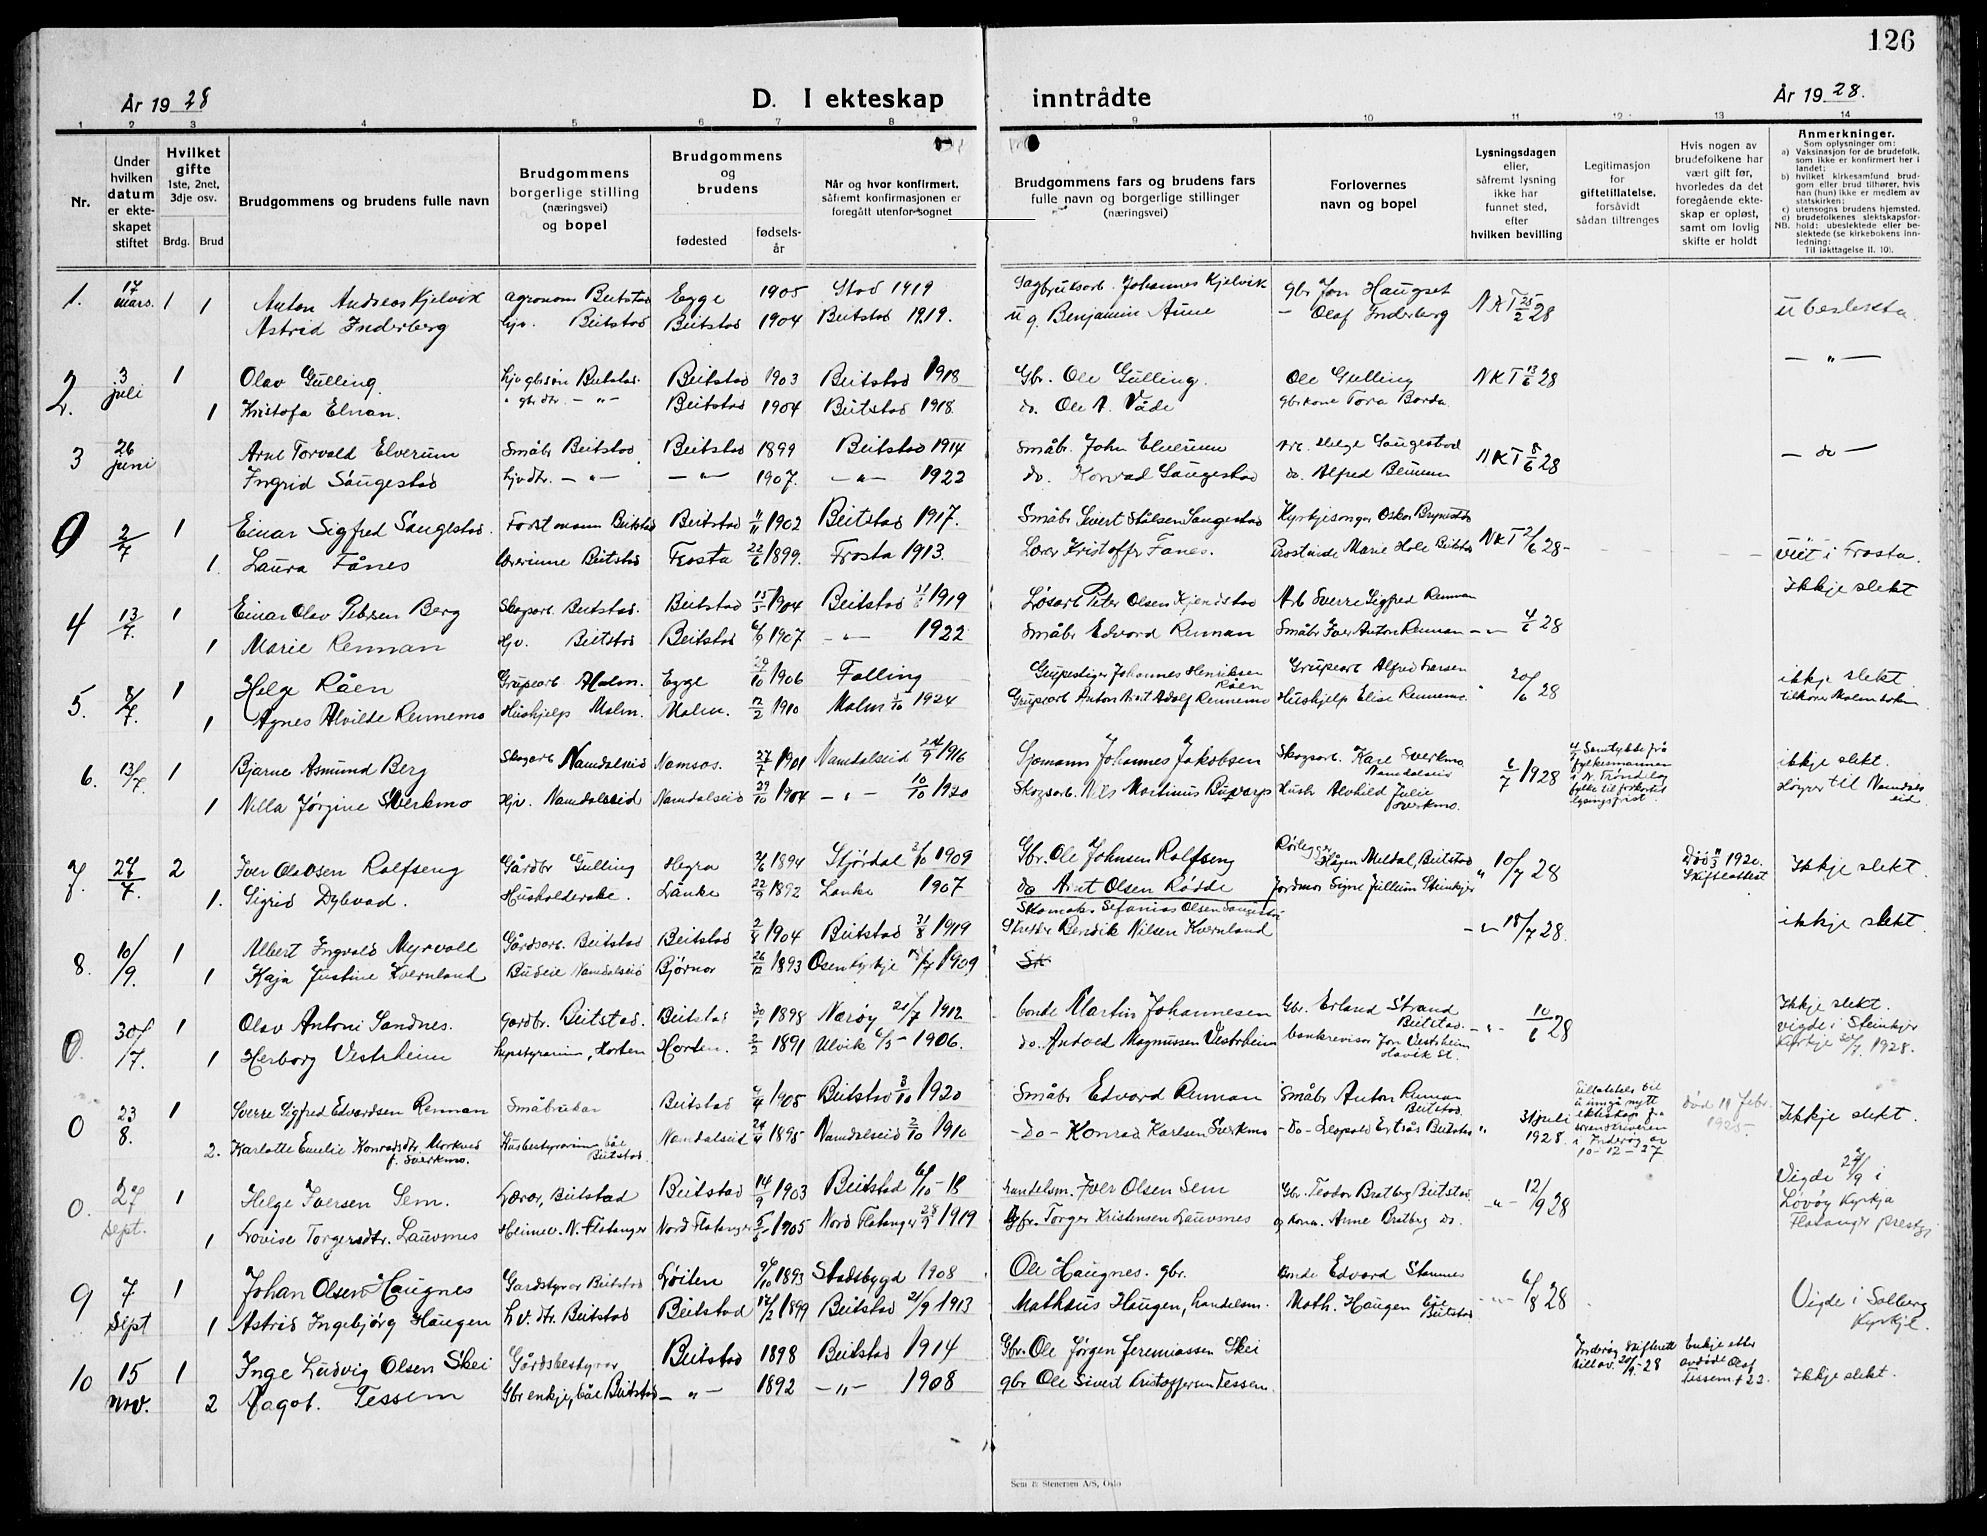 126
År 1928
D. I ekteskap inntrådte
År 1928.
1 2 3 4 5 6 7 8 9 10 11 12 13 14
Nr.
Under hvilken datum er ekteskapet stiftet
Hvilket gifte 1ste, 2net, 3dje osv.
Brdg. Brud
Brudgommens og brudens fulle navn
Brudgommens borgerlige stilling (næringsvei) og bopel
Brudgommens og brudens
fødested
fødselsår
Når og hvor konfirmert, såfremt konfirmasjonen er foregått utenfor sognet
Brudgommens fars og brudens fars fulle navn og borgerlige stillinger (næringsvei)
Forlovernes navn og bopel
Lysningsdagen eller, såfremt lysning ikke har funnet sted, efter hvilken bevilling
Legitimasjon for giftetillatelse, forsåvidt sådan tiltrenges
Hvis nogen av brudefolkene har vært gift før, hvorledes da det foregående ekteskap er opløst, samt om lovlig skifte er holdt
Anmerkninger.
Som oplysninger om:
a) Vaksinasjon for de brudefolk, som ikke er konfirmert her i landet;
b) hvilket kirkesamfund brudgom eller brud tilhører, hvis han (hun) ikke er medlem av statskirken;
c) utensogns brudens hjemsted.
d) brudefolkenes slektskapsforhold: ubeslektede eller beslektede (se kirkebokens innledning: Til iakttagelse II. 10).
NB.
1. 17 mars. 1 1 Anton Andreas Kjelvik agronom Beitstad Egge 1905 Stod 1919 Sagbruksarb. Johannes Kjelvik gbr Jon Haugset NKT 25/2 28 ubeslekta
Astrid Inderberg hjv. Beitstad Beitstad 1904 Beitstad 1919. Benjamin Aune - Olaf Inderberg
2. 3 juli 1 Olav Gulling. Beitstad 1903 Beitstad 1918 Gbr. Ole Gulling. Ole Gulling NKT 13/6 28 - " -
1 Kristofa Elnan. - " - Beitstad 1904 Beitstad 1918. do. Ole A. Våde gbrkone Tora Borda
3 26 juni Arne Torvald Elverum Småbr Beitstad Beitstad 1899 Beitstad 1914 Småbr. John Elverum Helge Saugestad NKT 8/6 28 - do -
Ingrid Saugestad hjv dtr. - " - - " - 1907. - " - 1922 do. Konrad Saugestad do. Alfred
0 2/7 1 Einar Sigfred Saugestad. Forstmann Beitstad Beitstad 11/11 1902 Beitstad 1917. Småbr Sivert Saugestad Kyrkjesongar Oskar NKT 2/6 28 - vigt i Frosta.
1. Laura Fånes Lærerinne Beitstad Frosta 22/6 1899. Frosta 1913. Lærer Kristoffer Fånes. Marie Hole Beitstad Ikkje slekt
4 13/7. 1 Einar Olav Petersen Berg Skogsarb. Beitstad. Beitstad 15/5 1904 Beitstad 1919 Løsarb Peter Olsen Kjendstad Arb Sverre Sigfred Rennan
1 Marie Rennan Hjv. Beitstad Beitstad 6/9 1907 - " - 1922 Småbr Edvard Rennan Småbr Iver Anton Rennan - " - 4/6 28
5. 8/7. 1 Helge Råen Grupearb. Malm. Egge 29/10 1906 Følling Grupestiger Johannes Henriksen Råen Grupearb Alfred 20/6 28 ikkje slekt
1 Agnes Alvilde Rennemo Hushjelp Malm. Malm. 12/2 1910 Malm 1/10 1924 Grupearb Anton Adolf Rennemo Hushjelp Elise Rennemo tilhører Malm
6. 13/7. 1 Bjarne Asmund Berg Skogarb Namdalseid Namsos. 27/7 1901 Namdalseid 24/9 1916 Sjømann Johannes Jakobsen Skogsarb. Kåre Sverkmo Namdalseid 6/7 1928 Samtykke frå fylkesmannen i N. Trøndelag fylke til forkortet lysingsfrist. ikkje slekt.
1 Nilla Jørgine Sverkmo Hjv. Namdalseid Namdalseid 29/10 1904 - " - 10/10 1920 Skogsarb. Nils Martinus Husbr Alvhild Julie Sverkmo. Høyrer til Namdalseid
7. 27/7 2 Iver Olavsen Rolfseng Gårdbr Gulling Hegra 2/6 1894 Stjørdal 2/10 1909 Gbr. Ole Johnsen Rolfseng Rørlegger Hågen Meldal, Beitstad " 10/7 28 Død 11/3 1920. Skifteattest Ikkje slekt.
1. Sigrid Dybvad. Husholderske. Lånke 22/9 1892 Lånke 1907 do Arnt Olsen Rødde Jordmor Signe Jullum Steinkjer
8. 10/9. 1 Albert Ingvald Myrvold Gårdsarb. Beitstad Beitstad 2/8 1904 Beitstad 31/8 1919 Skomaker Sefanias Olsen - " - 18/7 28. ikkje slekt.
1 Kaja Justine Kvernland Budeie Namdalseid Bjørnør 26/12 1893 Osen kyrkje 1909 Bendik Nilsen Kvernland
0. 30/7. 1 Olav Antoni Sandnes. Gardbr. Beitstad. Beitstad 30/1 1898 Nærøy 21/7 1912 bonde Martin Johannesen Gbr. Erland Strand Beitstad. - " - 10/6 28 Ikkje slekt.
1 Herborg Vestrheim Horten Horten. 2/2 1891 Ulvik 6/5 - 1906. do. Andved Magnussen Vestrheim bankrevisor Jon Vestrheim vigde i Steinkjer Kyrkje 30/7. 1928.
0 23 8. 1 Sverre Sigfred Edvardsen Rennan Småbrukar Beitstad 4/4 1905 Beitstad 3/10 1920 Småbr Edvard Rennan Småbr Anton Rennan Beitstad 31 juli 1928. Tillatelse til å inngå nytt ekteskap fra sorenskriveren i Inderøy av 10-12-27 død 19 febr. 1925. Ikkje slekt.
2. Karlotte Emelie Konradsdtr. Morkved f. Sverkmo. Husbestyrarinne båe Beitstad Namdalseid 24/4 1895 Namdalseid 2/10 1910 - Do - Konrad Karlsen Sverkmo - Do - Leopold Beitstad "
0. 27 Sept. 1 Helge Iversen Sem. Lærer, Beitstad Beitstad 14/9 1903 Beitstad 6/10 - 18 handelsm. Iver Olsen Sem Gbr. Teodor Bratberg Beitstad " - 12/9 28 Vigde 27/9 i
1 Lovise Torgersdtr. Lauvsnes Heimev. N. Flatanger Nord Flatanger 5/6 1905 Nord Flatanger 28/9 1919 Torger Kristensen Lauvsnes g.kona. Anne Bratberg do. Løvøy Kyrkja Flatanger prestgj.
9 7 Sept 1 Johan Olsen Haugnes Gardstyrar Beitstad Løiten 9/10 1893 Stadsbygd 1908 Ole Haugnes. gbr. Bonde Edvard Stamnes - " - 6/8 28 Vigde i Solberg Kyrkje.
1 Astrid Ingebjørg Haugen Hv. dtr. Beitstad Beitstad 17/2 1899 Beitstad 21/9 1913 Mathæus Haugen, handelsm. Math. Haugen båe Beitstad
10 15 nov. 1 Inge Ludvig Olsen Skei Gårdsbestyrer Beitstad 1898 Beitstad 1914 Gbr. Ole Jørgen Jeremiassen Skei Inderøy skifterett till. av. 20/9-28 Enkje etter avdøde Olaf Tessem † 22. Ikkje slekt.
2 Magot. Tessem Gbr enkje, båe Beitstad - " - 1892 - " - 1908 gbr Ole Sivert Kristoffersen Tessem.
Sem & Stenersen A/S, Oslo